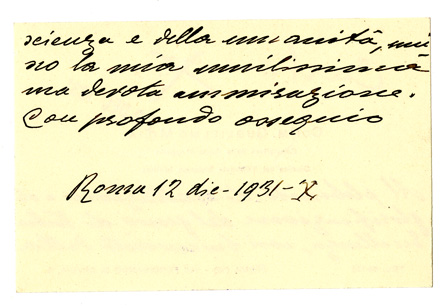 scienza e della umanità, uni
sco la mia umilissima
ma devota ammirazione.
Con profondo ossequio
Roma 12 dic- 1931-X